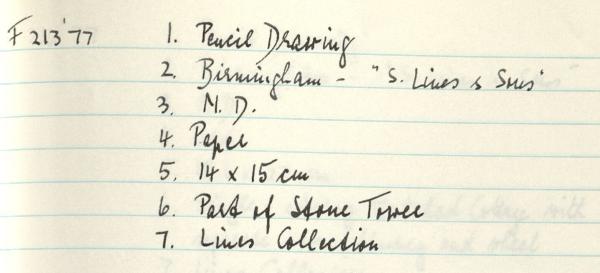 F 213'77 1. Pencil Drawing
2. Birmingham - "S. Lines & Sons"
3. N.D.
4. Paper
5. 14 x 15 cm
6. Part of Stone Tower
7. Lines Collection